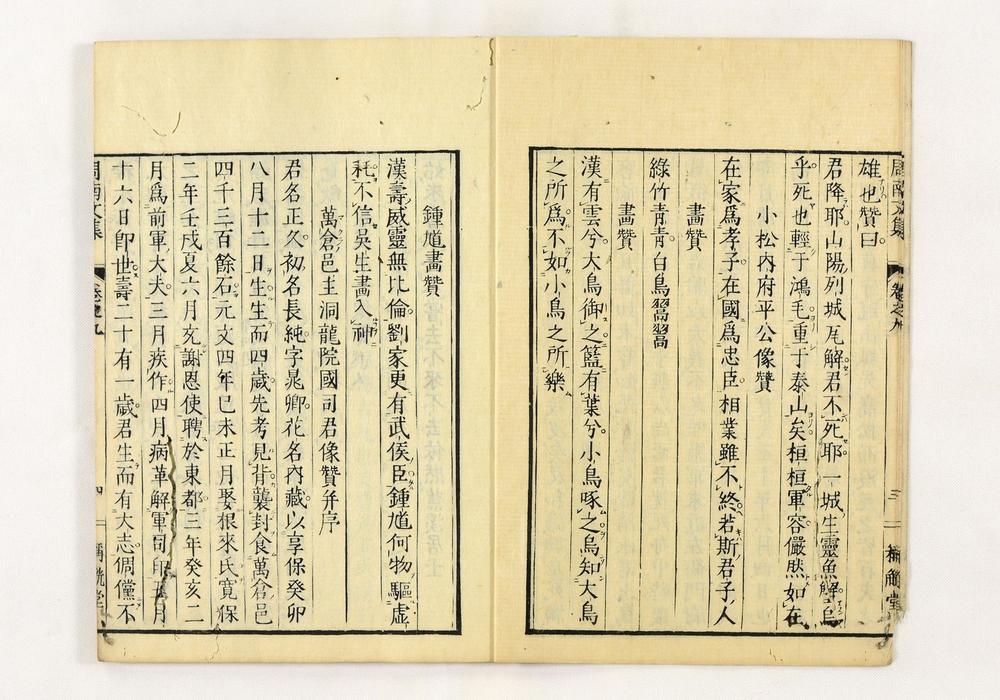 周南文集
卷之九
三
雄也贊曰
君降耶山陽列城瓦解君不死耶一城生靈魚解烏
乎死也輕于鴻毛重于泰山矣桓桓軍容儼然如在
小松內府平公像贊
在家爲孝子在國爲忠臣相業雖不終若斯君子人
畫贊
綠竹靑靑白鳥翯翯
畫贊
漢有雲兮大鳥御之籃有葉兮小鳥啄之烏知大鳥
之所爲不如小鳥之所樂
鍾馗畫贊
漢壽威靈無比倫劉家更有武侯臣鍾馗何物驅虛
耗不信吳生畫入神
萬倉邑主洞龍院國司君像贊幷序
君名正久初名長純字晁卿花名內藏以享保癸卯
八月十二日生生而四歲先考見背襲封食萬倉邑
四千三百餘石元文四年巳未正月娶根來氏寬保
二年壬戌夏六月充謝恩使聘於東都三年癸亥二
月爲前軍大夫三月疾作四月病革解軍司印五月
十六日卽世壽二十有一歲君生而有大志倜儻不
周南文集
卷之九
四